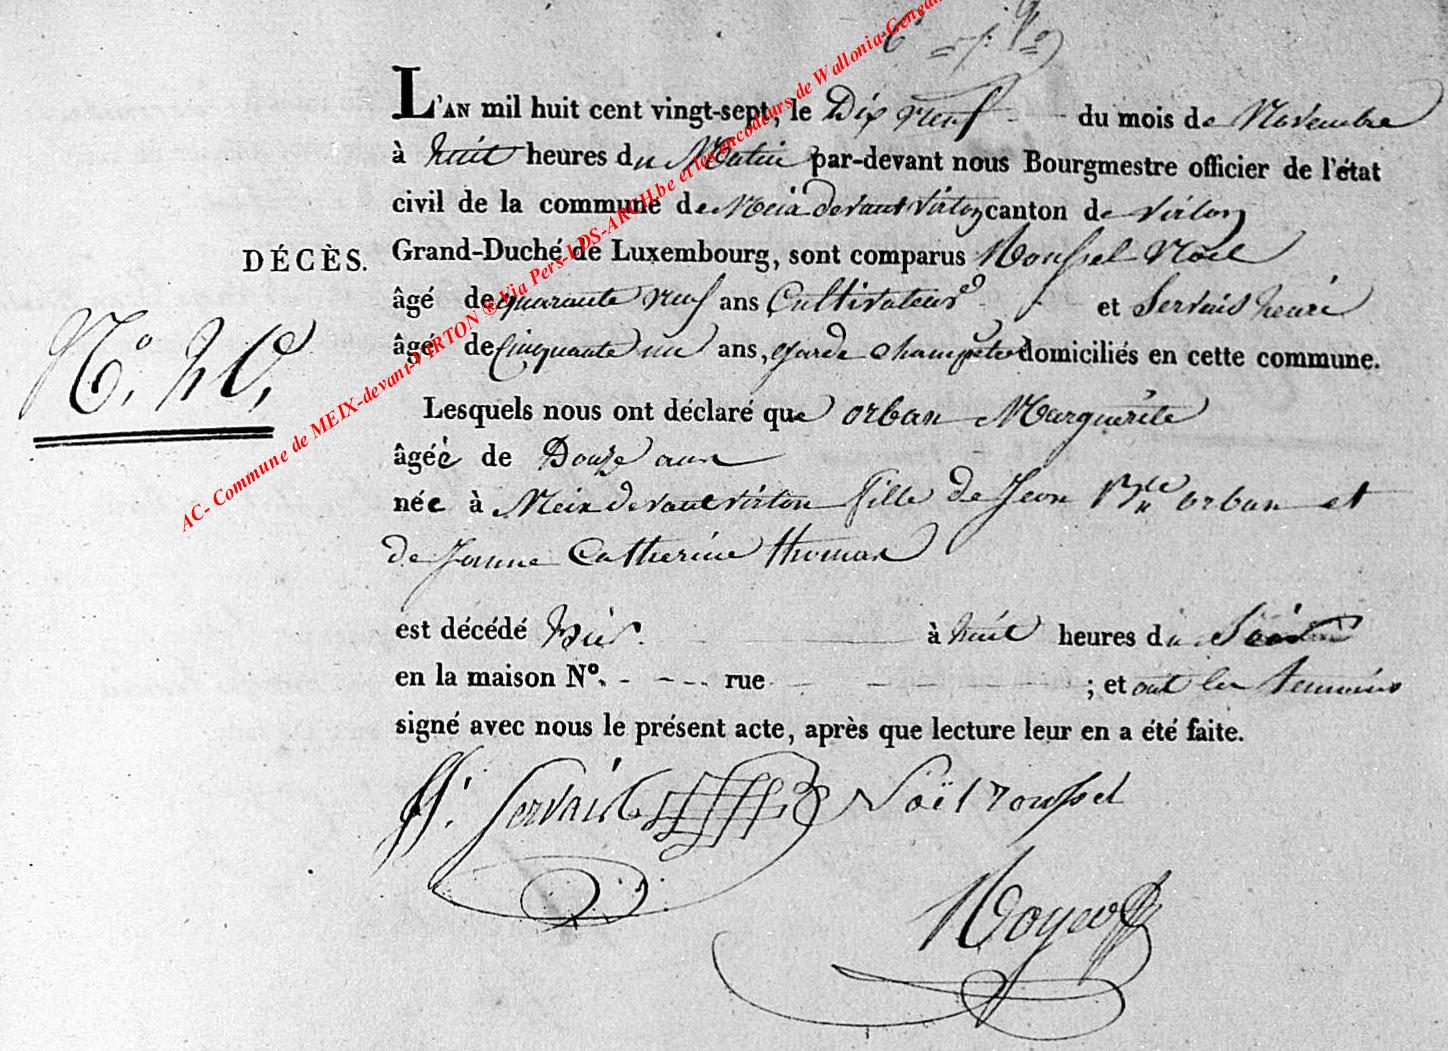 L'AN mil huit cent vingt-sept, le Dix neuf du mois de Novembre
à huit heures du Matin par-devant nous Bourgmestre officier de l'état
civil de la commune de Meix devant virton canton de virton
Grand-Duché de Luxembourg, sont comparus Roussel Noël
DÉCÈS.
âgé de quarante neuf ans Cultivateur et Servais henri
âgé de Cinquante un ans, garde champêtre domiciliés en cette commune.
N.° 20.
Lesquels nous ont déclaré que orban Marguerite
âgée de Douze ans
née à Meix devant virton fille de Jean Bte orban et
de Jeanne Catherine thomas
est décédé hier à huit heures du Soir
en la maison N°. rue ; et ont les temoins
signé avec nous le présent acte, après que lecture leur en a été faite.
H. Servais Noël roussel
AC- Commune de MEIX-devant-VIRTON ® Via Pers-LDS-ARCH.be et les encodeurs de Wallonia-Geneal